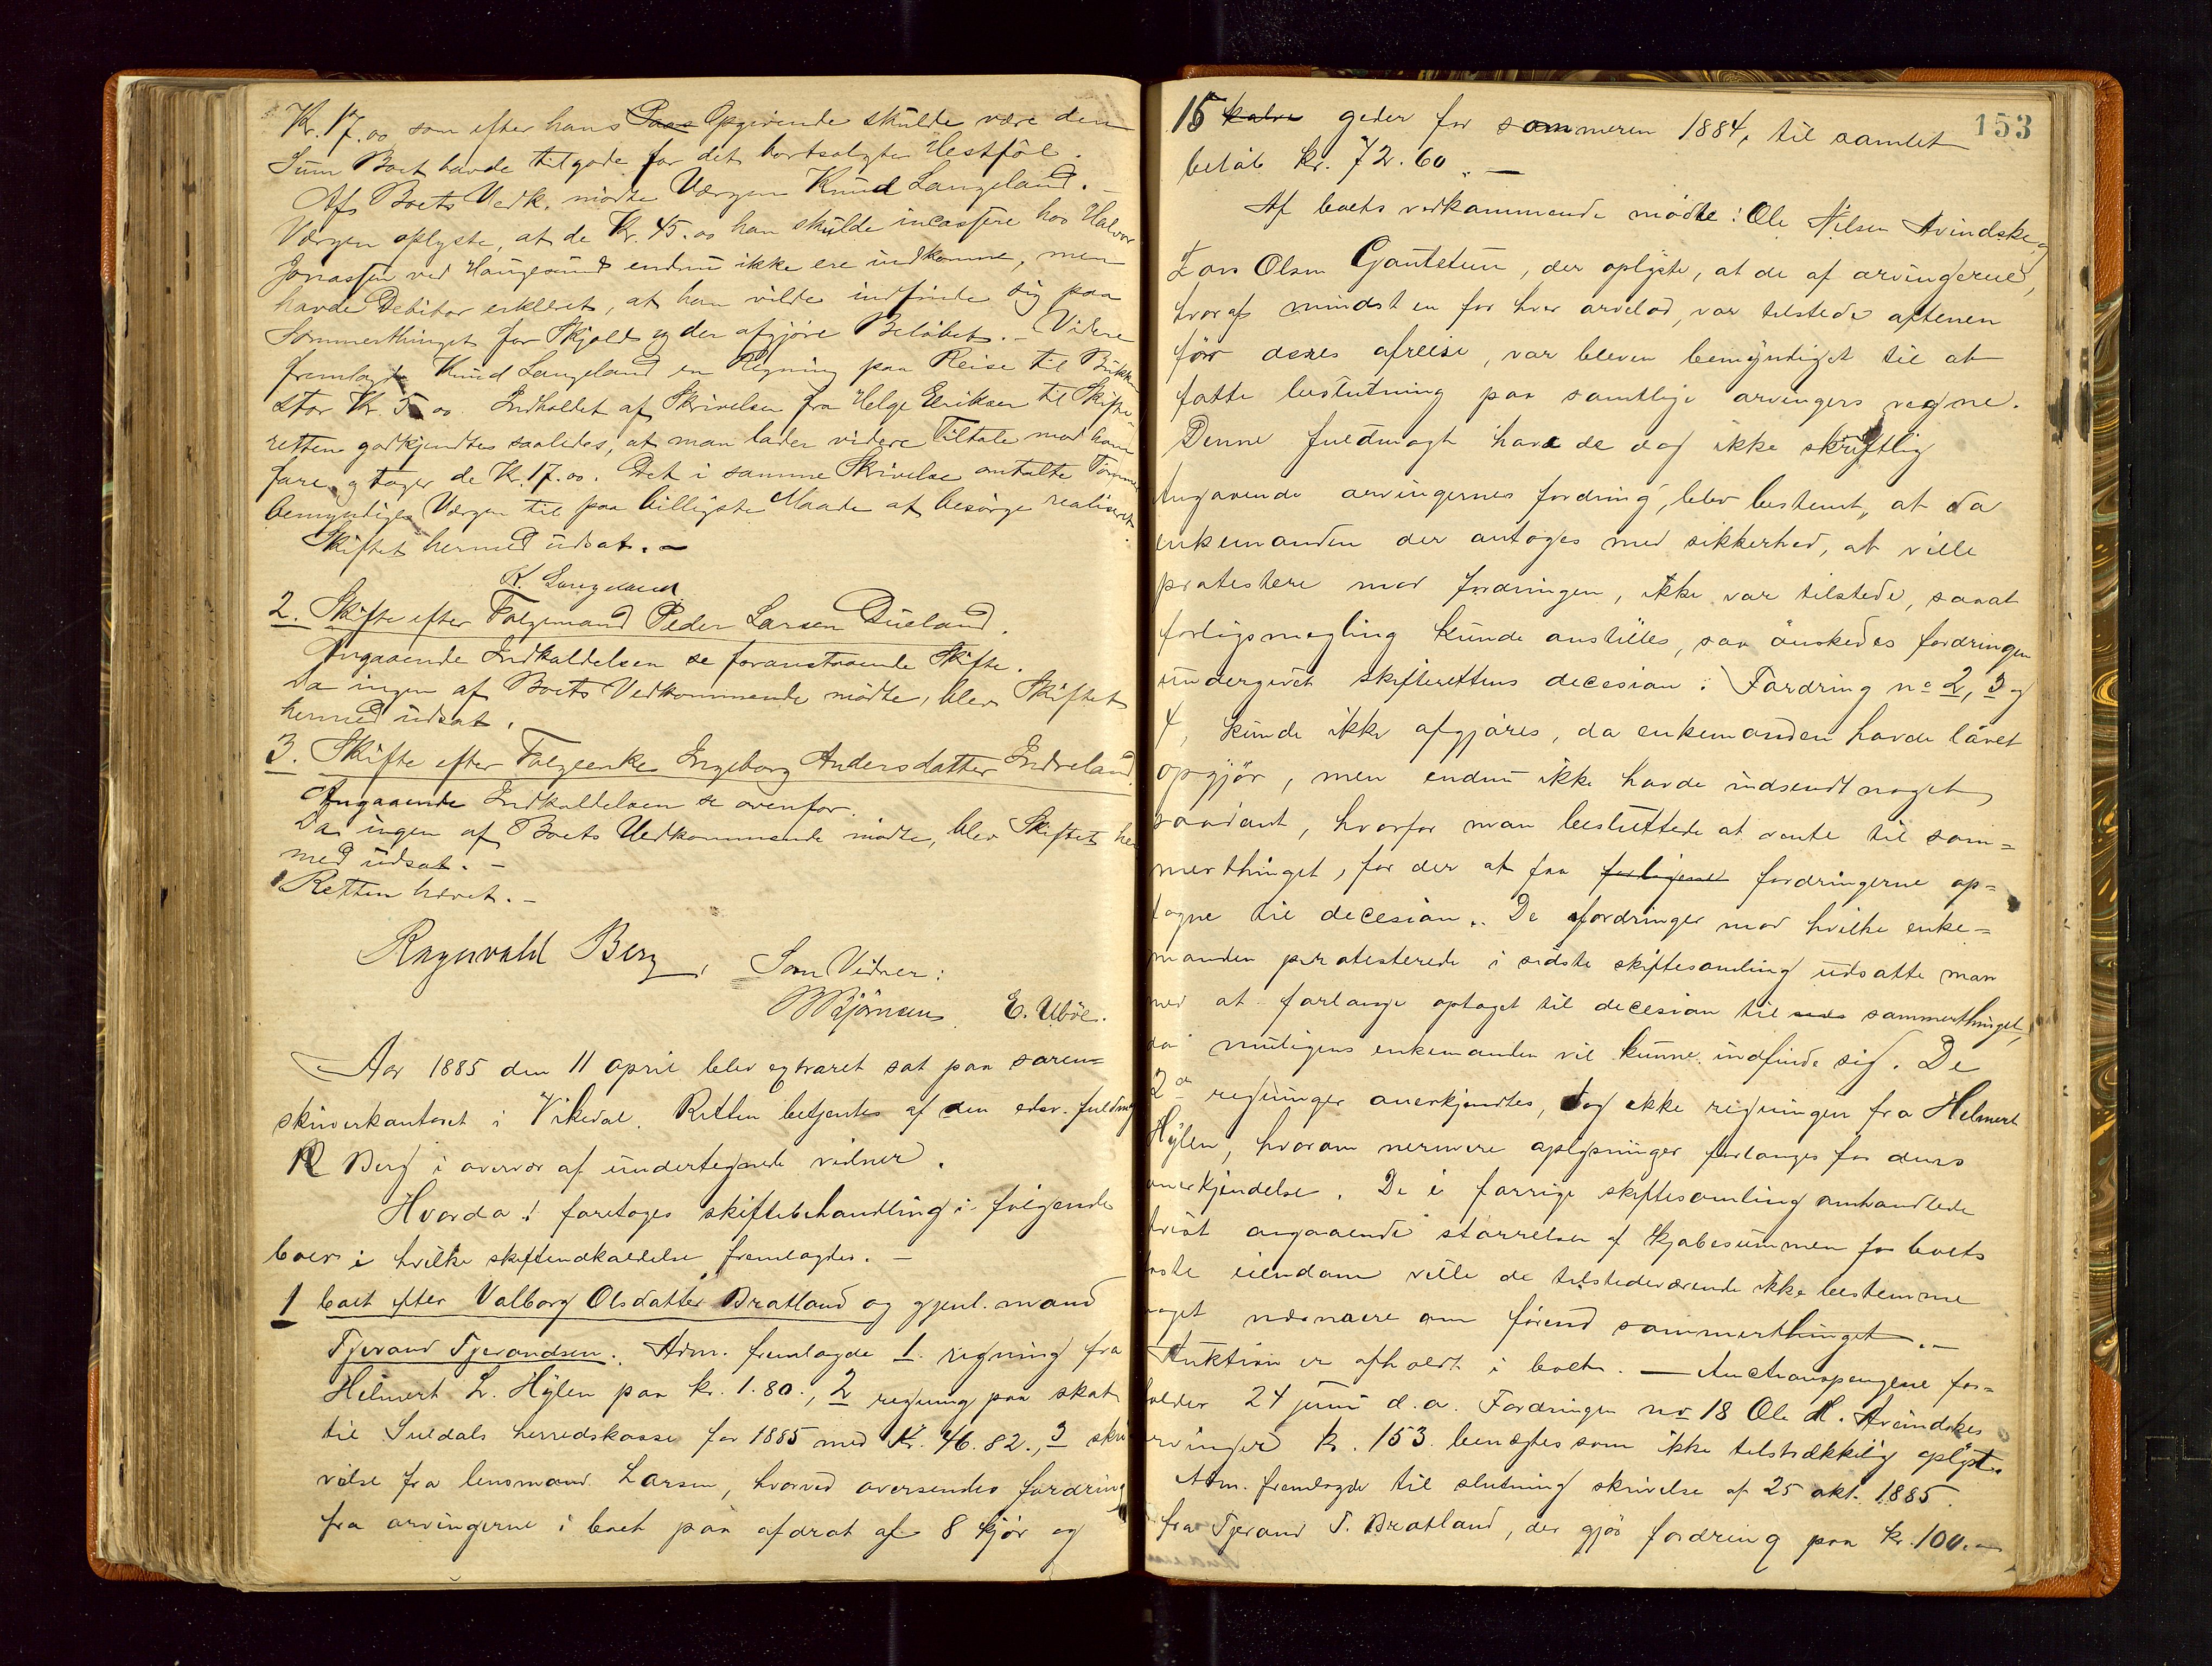 Kr. 17.00 som efter hans Paas Opgivende skulde være den
Sum Boet havde tilgode for det bortsolgte Hestføl.
Afs Boets Vedk. mødte Værgen Knud Langeland. –
Værgen oplyste, at de Kr. 45.00 han skulde incassere hos Halvor
Jonassen ved Haugesund endnu ikke ere indkomne, men
havde Debitor erklæret, at han vilde indfinde sig paa
Sommerthinget for Skjold og der afgjøre Beløbet. – Videre
fremlagde Knud Langeland en Regning paa Reise til
stor Kr. 5.00. Indholdet af Skrivelsen fra Helge Eriksen til Skifte
retten godkjendtes saaledes, at man lader videre Tiltale mod ham
fare og tager de Kr. 17.00. Det i samme Skrivelse omtalte Tømmer
bemyndiges Værgen til paa billigste Maade at besørge realiseret
Skiftet hermed udsat. –
K. Langeland
2. Skifte efter Folgemand Peder Larsen Dueland.
Angaaende Indkaldelsen se foranstaaende Skifte.
Da ingen af Boets Vedkommende mødte, blev Skiftet
hermed udsat.
3. Skifte efter Folgeenke Ingeborg Andersdatter Indreland
Angaaende Indkaldelsen se ovenfor.
Da ingen af Boets Vedkommende mødte, blev Skiftet her
med udsat. –
Retten hævet. –
Ragnvald Berg, Som Vidner:
Bjørnsen E. Ubøe.
Aar 1885 den 11 april blev extraret sat paa soren=
skriverkontoret i Vikedal. Retten betjentes af den edsv. fuldmg
R Berg i overvær af undertegnede vidner.
Hvorda! foretoges skiftebehandling i følgende
boer i hvilke skifteindkaldelse fremlagdes. –
1 boet efter Valborg Olsdatter Bratland og gjenl. mand
Tjerand Tjerandsen. Adm. fremlagde 1. regning fra
Helmert L. Hylen paa kr. 1.80., 2 regning paa skat
til Suldals herredskasse for 1885 med Kr. 46.82., 3 skri
velse fra lensmand Larsen, hvorved oversendes fordring
fra arvingerne i boet paa afdrot af 8 kjør og
153
15 kalve geder for sommeren 1884, til samlet
beløb kr. 72.60. –
Af boets vedkommende mødte: Ole Nilsen Kvindske og
Lars Olsen Gautetun, der oplyste, at de af arvingerne,
hvoraf mindst en for hver arvelod, var tilstede aftenen
før deres afreise, var bleven bemyndiget til at
fatte beslutning paa samtlige arvingers vegne.
Denne fuldmagt havde de dog ikke skriftlig
Angaaende arvingernes fordring, blev bestemt, at da
enkemanden der antoges med sikkerhed, at ville
protestere mod fordringen, ikke var tilstede, saaat
forligsmegling kunde anstilles, saa ønskedes fordringen
undergivet skifterettens decesion. Fordring no 2, 3 og
4, kunde ikke afgjøres, da enkemanden havde lovet
opgjør, men endnu ikke havde indsendt noget
saadant, hvorfor man besluttede at vente til som=
merthinget, for der at faa forligene fordringerne op=
tagne til decesion. De fordringer mod hvilke enke=
manden protesterede i sidste skiftesamling udsatte man
med at forlange optaget til decesion til sids sommerthinget,
da muligens enkemanden vil kunne indfinde sig. De
2de regninger anerkjendtes, dog ikke regningen fra Helmert
Hylen, hvorom nermere oplysninger forlanges for dens
anerkjendelse. De i forrige skiftesamling omhandlede
tvist angaaende størrelsen af kjøbesummen for boets
faste eiendom ville de tilstedeværende ikke bestemme
noget nærmere om førend sommerthinget. –
Auktion er afholdt i boet. – Auctionspengene for=
falder 24 juni d.a. Fordringen no 18 Ole H. Kvindskes
arvinger kr. 153. benægtes som ikke tilstrækkelig oplyst.
Adm. fremlagde til slutning skrivelse af 25 okt. 1885.
fra Tjerand T. Bratland, der gjør fordring paa kr. 100. –